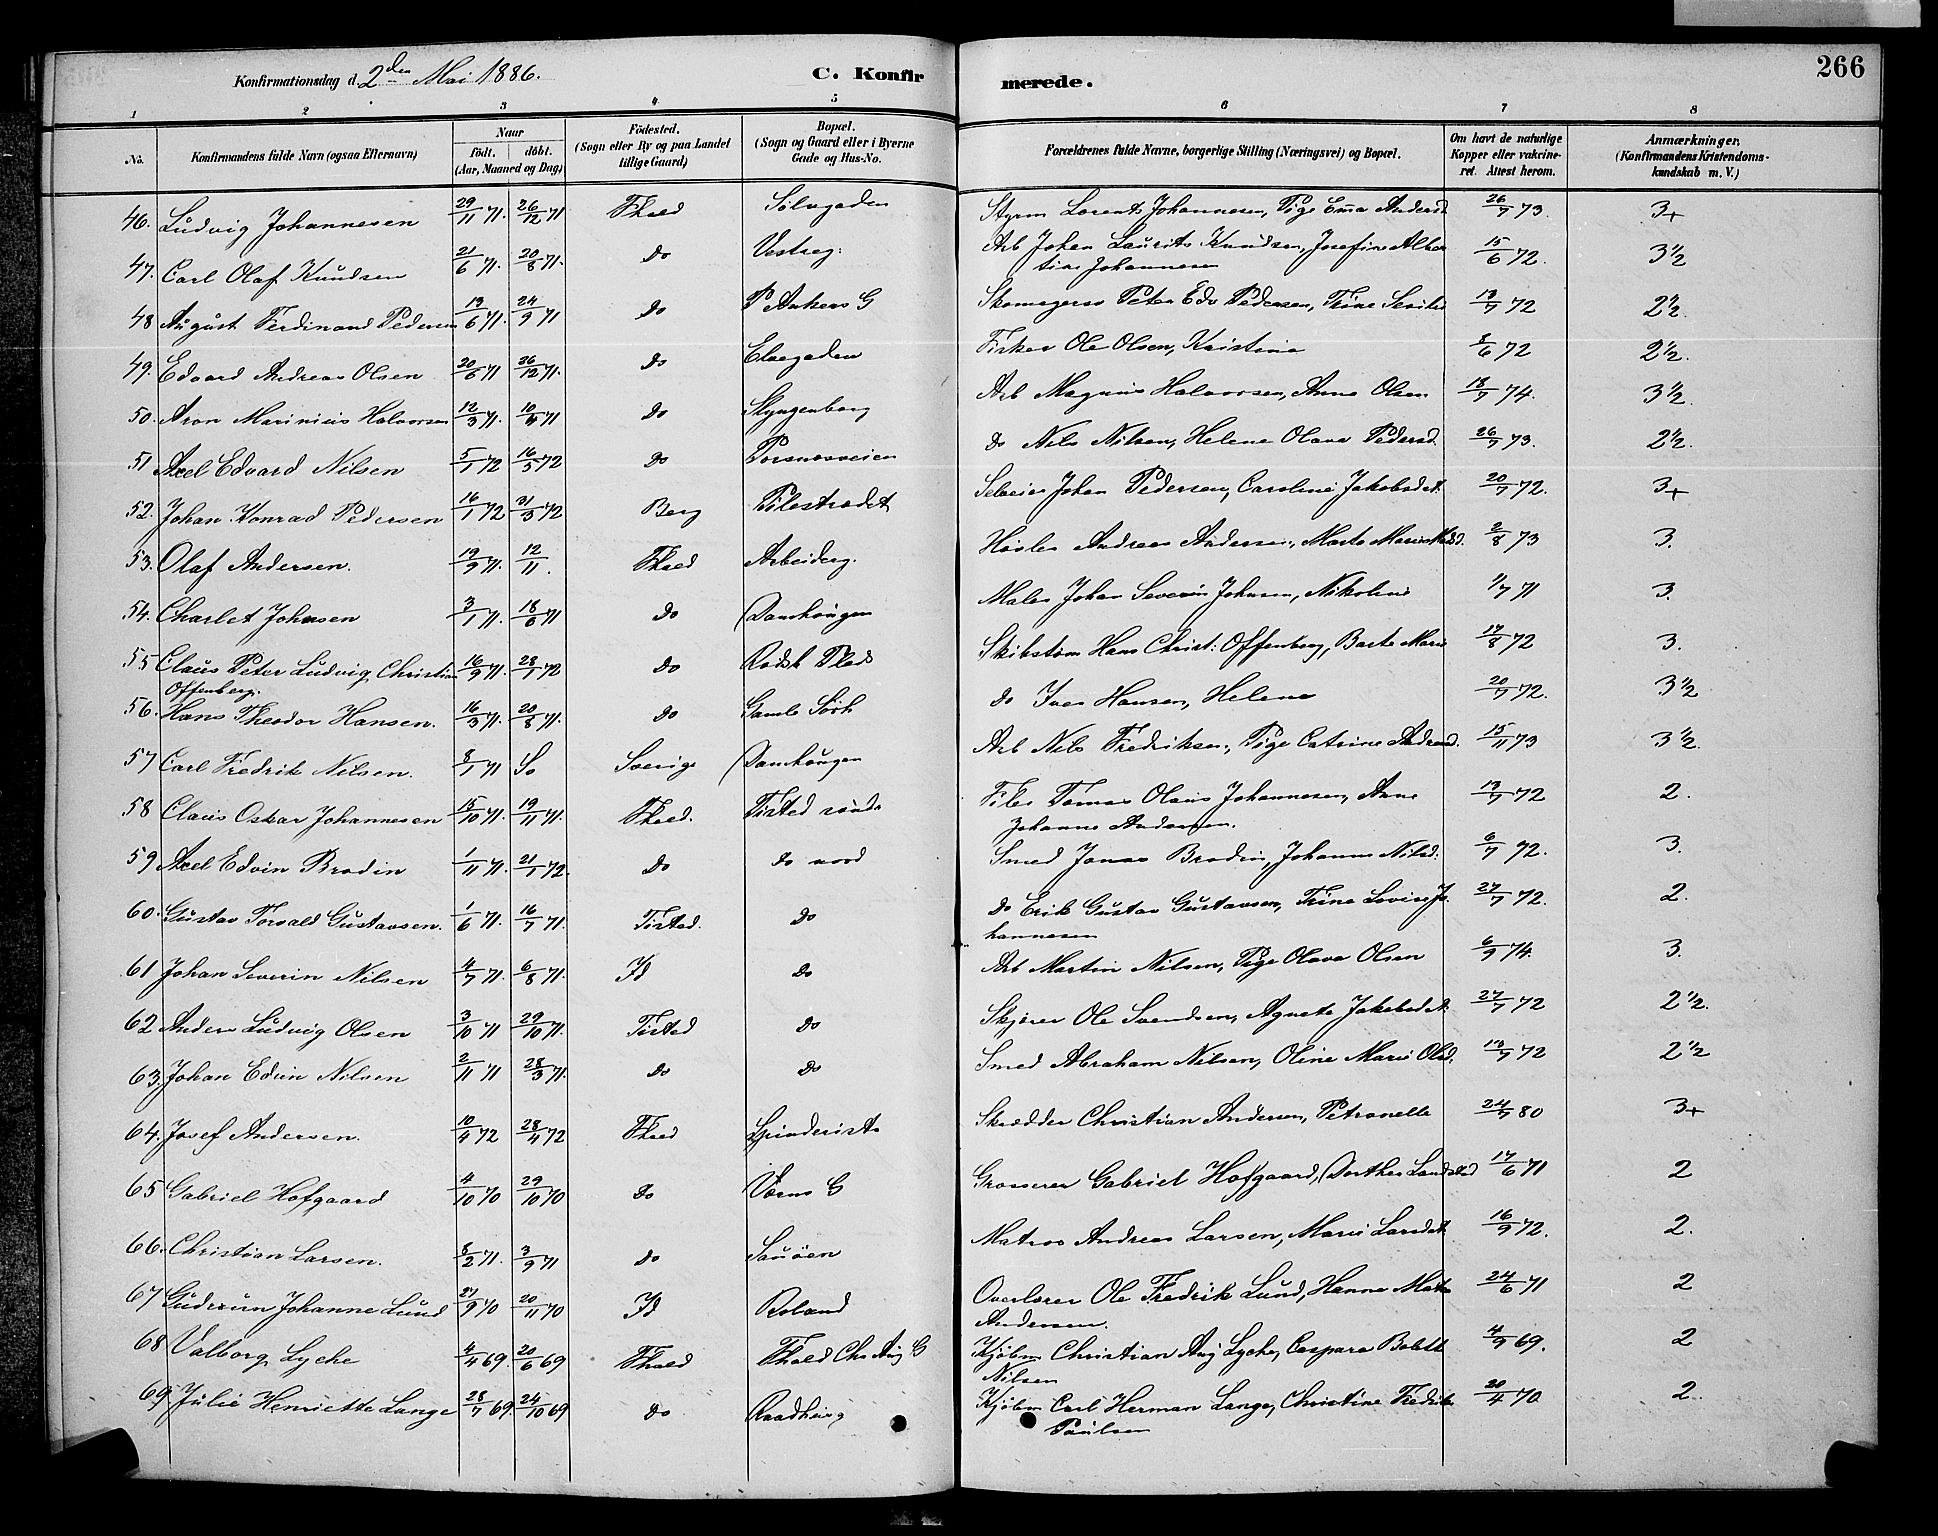 266
Konfirmationsdag d. 2den Mai 1886. C. Konfirmerede.
1 2 3 4 5 6 7 8
No. Konfirmandens fulde Navn (ogsaa Efternavn) Naar født. døbt. (Aar, Maaned og Dag) Fødested. (Sogn eller By og paa Landet tillige Gaard) Bopæl. (Sogn og Gaard eller i Byerne Gade og Hus-No. Forældrenes fulde Navne, borgerlige Stilling (Næringsvei) og Bopæl. Om havt de naturlige Kopper eller vakcineret. Attest herom. Anmærkninger. (Konfirmandens Kristendomskundskab m. V.)
46. Ludvig Johannesen 29/11 71. 26/12 71 Fhald Sølvgaden Styrm Lorents Johannesen, Pige Ema Andersd 26/7 73. 3+
47. Carl Olaf Knudsen 21/6 71. 20/8 71. Do Vestreg: Arb Johan Laurits Knudsen, Josefine Alber
tine Johannesen 15/6 72. 3 1/2
48 August Ferdinand Pedersen 13/6 71. 24/9 71 Do P Ankers G Skomagersv Peter Edv Pedersen, Trine 13/7 72 2 1/2.
49. Edvard Andreas Olsen 20/6 71 26/12 71. Do Elvegaden Fisker Ole Olsen, Kristine 8/6 72 2 1/2.
50. Aron Marinius Halvorsen 12/3 71. 10/4 71 Do Slyngenborg Arb Magnus Halvorsen, Anna Olsen 18/7 74. 3 1/2.
51 Axel Edvard Nilsen 5/1 72 16/5 72 Do Porsnesveien Do Nils Nilsen, Helene Olava Pedersd. 26/7 73. 2 1/2.
52. Johan Konrad Pedersen 16/1 72 31/3 72 Berg Pilestrædet Selveier Johan Pedersen, Caroline Jakobsdt. 20/7 72. 3+
53. Olaf Andersen. 19/9 71. 12/11. Fhald Arbeiderg. Høvler Andreas Andersen, Marte Marie 2/8 73 3.
54. Charlet Johnsen 3/1 71. 18/6 71 Do Damhaugen Maler Johan Severin Johnsen, Nikoline 1/7 71 3.
55 Claus Peter Ludvig Christian
Offenberg. 16/9 71. 28/1 72 Do Rødsb Plads Skibstøm Hans Christ: Offenberg, Berte Marie 17/8 72 3.
56. Hans Theodor Hansen. 16/3 71. 20/8 71. Do Gamle Do Iver Hansen, Helene 20/7 72. 3 1/2
57 Carl Fredrik Nilsen. 8/1 71 Sverige Damhaugen Arb Nils Fredriksen, Pige Catrine Andersd. 15/11 73 3 1/2.
58 Claus Oskar Johannesen 15/10 71. 19/11 71. Fhald. Tisted sønd Tomas Olaus Johannesen, Anne
Johanne Andersen. 13/7 72 2.
59 Axel Edvin Brodin 1/11 71. 21/1 72. Do Do nord Smed Jonas Brodin, Johanne Nilsd: 6/7 72. 3.
60. Gustav Torvald Gustavsen. 1/6 71. 16/7 71. Tisted. Do Do Erik Gustav Gustavsen, Trine Lovise Jo
hannesen 27/7 72. 2.
61 Johan Severin Nilsen 4/7 71. 6/8 71. Id Do Arb Martin Nilsen, Pige Olava Olsen 6/9 74. 3.
62 Anders Ludvig Olsen 3/10 71 29/10 71. Tisted Do Skjører Ole Svendsen, Agnete Jakobsdt. 27/7 72 2 1/2.
63. Johan Edvin Nilsen 2/11 71 28/3 71. Do Do Smed Abraham Nilsen, Oline Marie Olsd. 13/7 72 2 1/2
64. Josef Andersen. 10/4 72 28/4 72 Fhald Skrædder Christian Andersen, Petronelle 24/7 80 3+
65 Gabriel Hofgaard 4/10 70 29/10 70 Do Værns G Grosserer Gabriel Hofgaard, Dorthea Landstad 17/6 71 2
66. Christian Larsen. 8/2 71. 3/9 71 Do Sauøen Matros Andreas Larsen, Marie Larsdt 16/9 72. 2.
67 Gudrun Johanne Lund 27/9 70 20/11 70 Id Roland Overlærer Ole Fredrik Lund, Hanna
Andersen. 24/6 71 2
68 Valborg Lyche 4/4 69. 20/6 69 Fhald Fhald Chr Aug G Kjøbm Christian Aug Lyche, Caspara Bolett
Nilsen 4/9 69. 2
69 Julie Henriette Lange 28/7 69. 24/10 69 Do Raadhusg Kjøbm Carl Herman Lange, Christine Fredrikke
Paulsen 20/4 70 2.